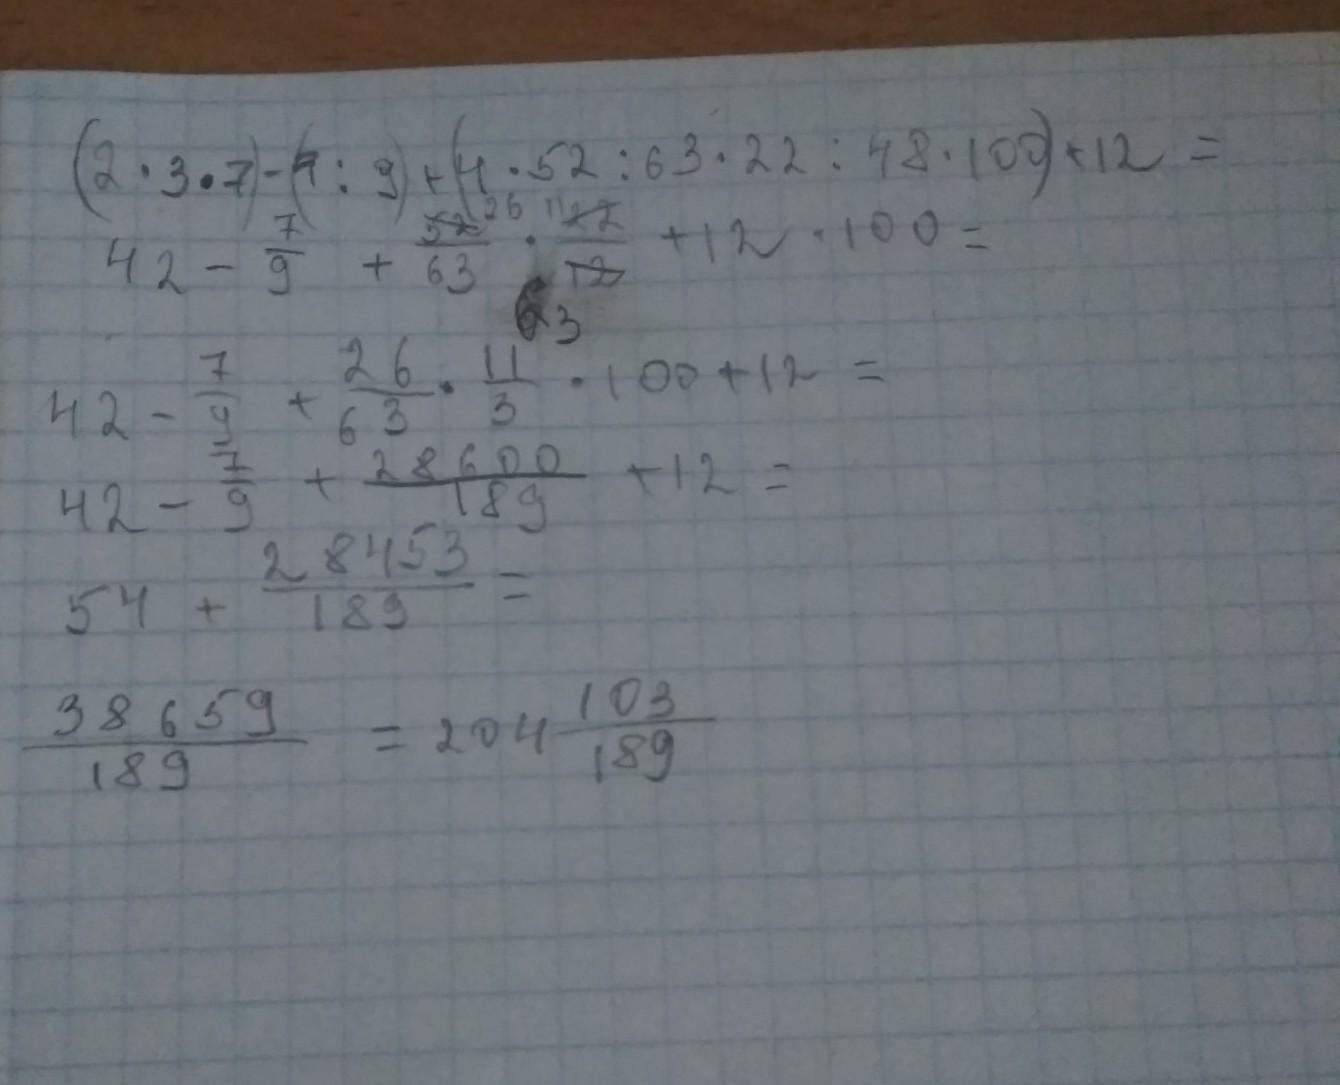 (2·3·7)-(7:9)+(4·52:63·22:48·100)+12=
42 - 7/9 + 52/63 26 · 11 22/12 + 12 · 100 =
3
42 - 7/9 + 26/63 · 11/3 · 100 + 12 =
42 - 7/9 + 28600/189 + 12 =
54 + 28453/189 =
38659/189 = 204 103/189